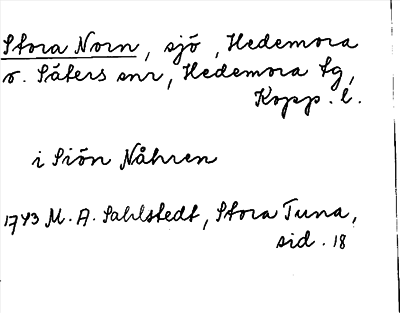 Stora Norn, sjö, Hedemora
o. Säters snr, Hedemora tg,
Kopp. l.
i Siön Nåhren
1743 M. A. Sahlstedt, Stora Tuna,
sid. 18